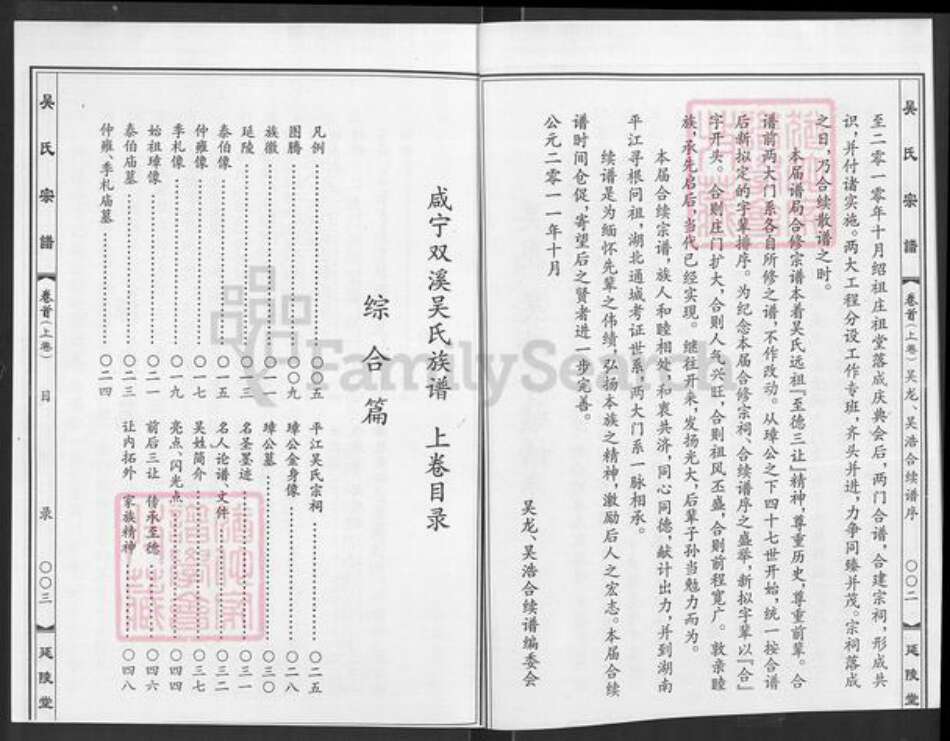 吴氏宗谱
卷首(上卷)
吴龙、吴浩合续谱序
〇〇二
延陵堂
至二零一零年十月绍祖庄祖堂落成庆典会后，两门合谱，合建宗祠，形成共
识，并付诸实施。两大工程分设工作专班，齐头并进，力争同臻并茂。宗祠落成
之日，乃合续散谱之时。
本届谱局合修宗谱本着吴氏远祖『至德三让』精神，尊重历史，尊重前辈。合
谱前两大门系各自所修之谱，不作改动。从璋公之下四十七世开始，统一按合谱
后新拟定的字辈排序。为纪念本届合修宗祠、合续谱序之盛举，新拟字辈以『合』
字开头。合则庄门扩大，合则人气兴旺，合则祖风丕盛，合则前程宽广。敦亲睦
族，承先启后，当代已经实现。继往开来，发扬光大，后辈子孙当勉力而为。
本届合续宗谱，族人和睦相处，和衷共济，同心同德，献计出力，并到湖南
平江寻根问祖，湖北通城考证世系，两大门系一脉相承。
续谱是为缅怀先辈之伟绩，弘扬本族之精神，激励后人之宏志。本届合续
谱时间仓促，寄望后之贤者进一步完善。
吴龙、吴浩合续谱编委会
公元二零一一年十月
咸宁双溪吴氏族谱 上卷目录
综合篇
凡例……〇〇五
图腾……〇〇九
族徽……〇一一
延陵……〇一三
泰伯像……〇一五
仲雍像……〇一七
季札像……〇一九
始祖璋像……〇二一
泰伯庙墓……〇二三
仲雍、季札庙墓……〇二四
平江吴氏宗祠……〇二五
璋公金身像……〇二八
璋公墓……〇三〇
名圣墨迹……〇三一
名人论谱、文件……〇三二
吴姓简介……〇三七
亮点、闪光点……〇四四
前后三让 传承至德……〇四六
让内拓外 家族精神……〇四八
吴氏宗谱
卷首(上卷)
目录
〇〇三
延陵堂
FamilySearch